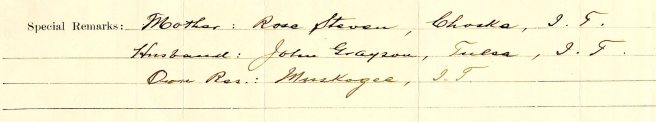 Special Remarks: Mother: Rose Steven, Choska, I. T.
Husband: John Grayson, Tulsa, I. T.
Own Res.: Muskogee, I. T